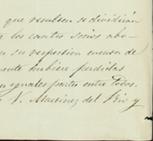 que resulten se dividirán
los cuatro socios abo-
su respectivo
hubiere perdidas
iguales partes entre todos.
V. Martinez del Rio y